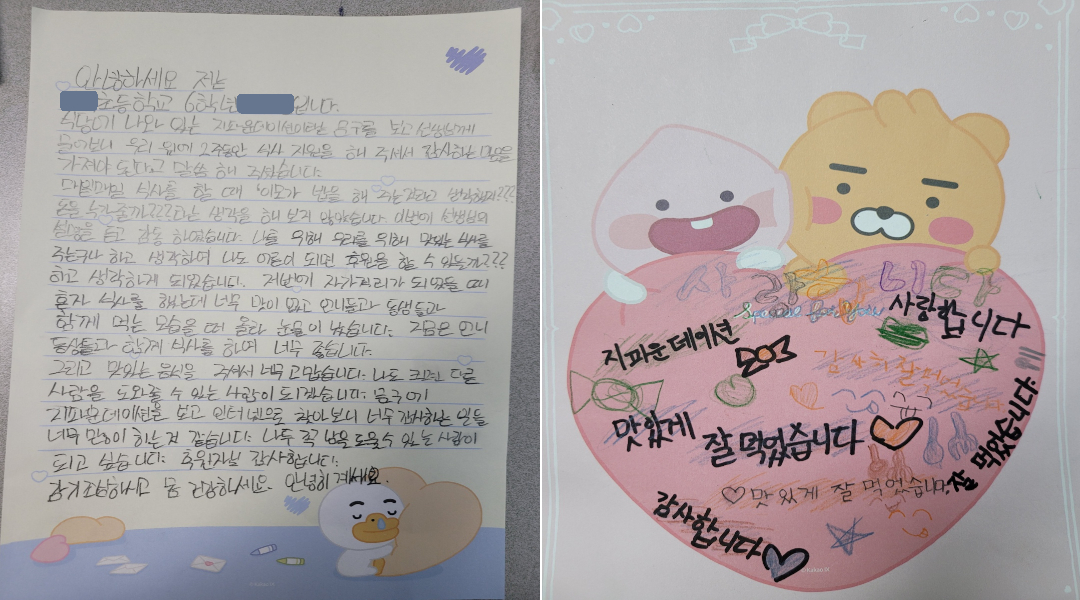 안녕하세요 저는
초등학교 6학년 입니다.
식당에 나와 있는 지파운데이션이란 문구를 보고 선생님께
물어보니 우리 위해 2주동안 식사 지원을 해 주셔서 감사하는 마음을
가져야 된다고 말씀 해 주셨습니다.
매일매일 식사를 할 때 '이모가 밥을 해 주는거라고 생각했지???
돈은 누가줄까???라는 생각을 해 보지 않았습니다. 이번에 선생님의
설명을 듣고 감동 하였습니다. 나를 위해 우리를 위해 맛있는 식사를
주는구나 하고 생각하며 나도 어른이 되면 후원을 할 수 있을까???
하고 생각하게 되었습니다. 저번에 자가격리가 되었을 때
혼자 식사를 하는데 너무 맛이 없고 언니들과 동생들과
함께 먹는 모습을 떠 올라 눈물이 났습니다. 지금은 언니
동생들과 함께 식사를 하여 너무 좋습니다.
그리고 맛있는 음식을 주셔서 너무 고맙습니다. 나도 크면 다른
사람을 도와줄 수 있는 사람이 되겠습니다. 문구에
지파운데이션을 보고 인터넷으로 찾아보니 너무 감사하는 일들
너무 많이 하는거 같습니다. 나도 꼭 남을 도울수 있는 사람이
되고 싶습니다. 후원자님 감사합니다.
감기조심하시고 몸 건강하세요. 안녕히 계세요.
사랑합니다
사랑합니다
지파운데이션
감사히 잘먹
맛있게 잘 먹었습니다
잘 먹었습니다
맛있게 잘 먹었습니다.
감사합니다